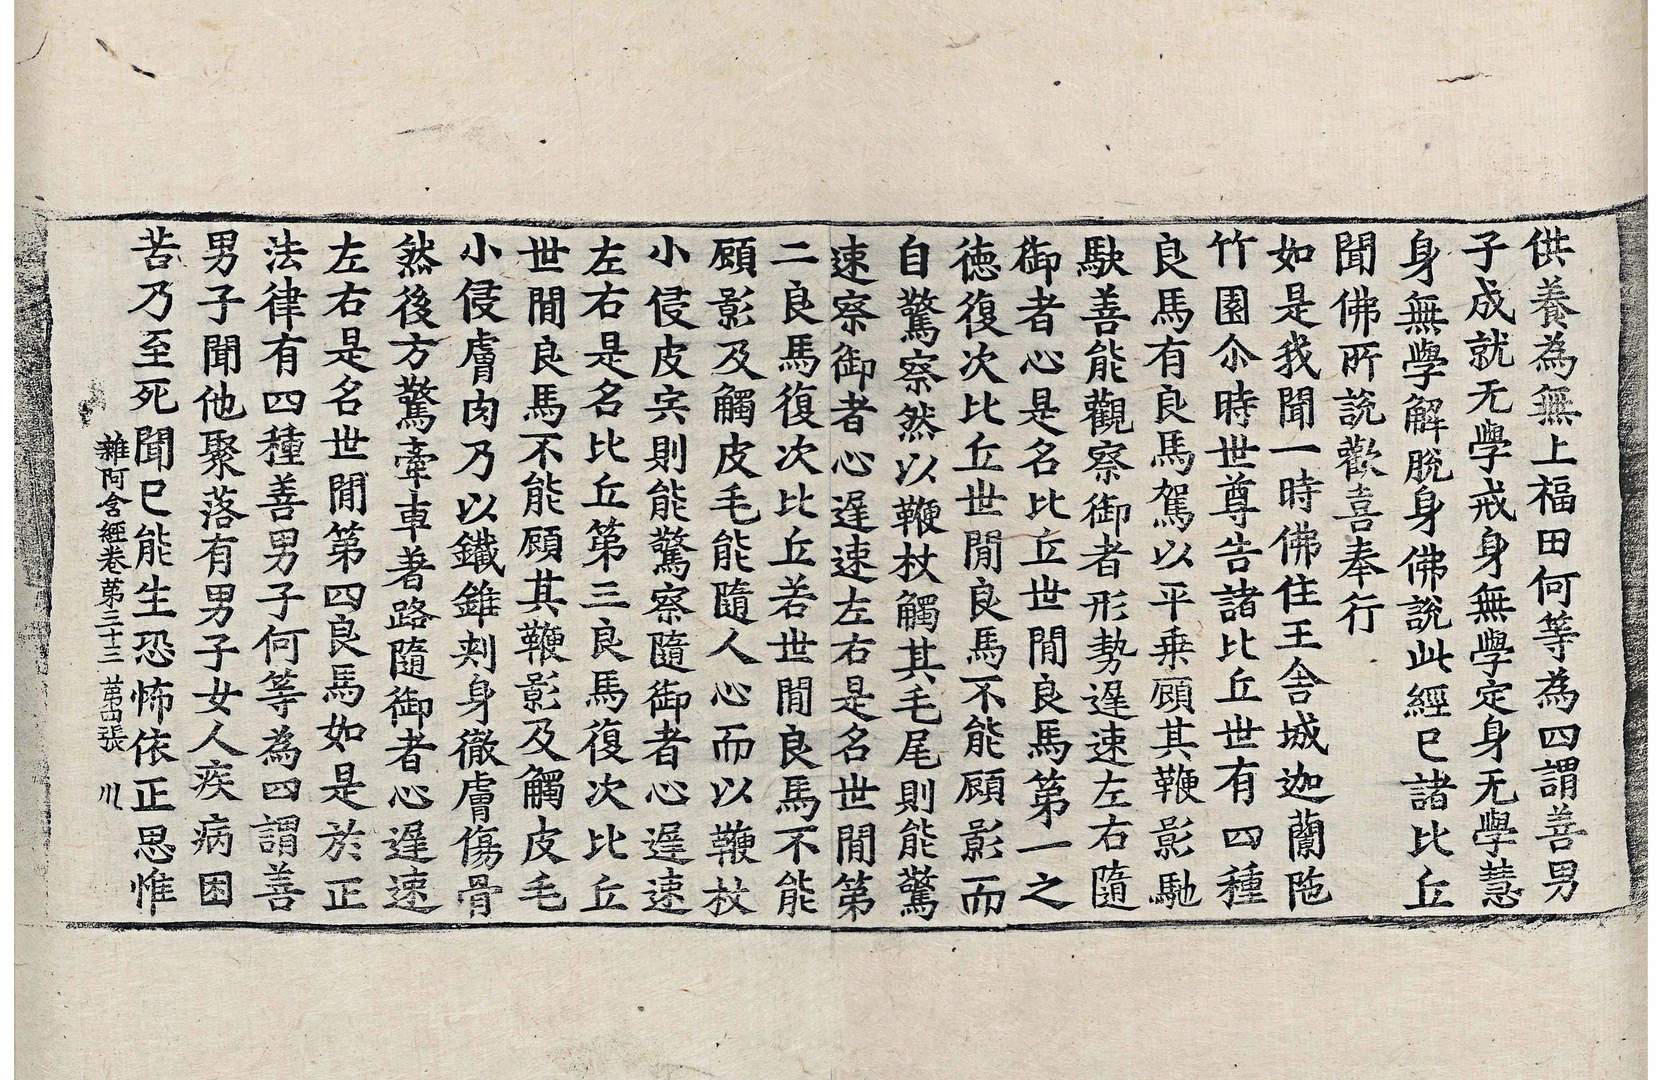 供養為無上福田何等為四謂善男
子成就无學戒身無學定身无學慧
身無學解脫身佛說此經已諸比丘
聞佛所說歡喜奉行
如是我聞一時佛住王舍城迦蘭陁
竹園尒時世尊告諸比丘世有四種
良馬有良馬駕以平乗顧其鞭影馳
駃善能觀察御者形勢遟速左右隨
御者心是名比丘世閒良馬第一之
徳復次比丘世閒良馬不能顧影而
自驚察然以鞭杖觸其毛尾則能驚
速察御者心遟速左右是名世閒第
二良馬復次比丘若世閒良馬不能
顧影及觸皮毛能隨人心而以鞭杖
小侵皮宍則能驚察隨御者心遟速
左右是名比丘第三良馬復次比丘
世閒良馬不能顧其鞭影及觸皮毛
小侵膚肉乃以鐵錐刾身徹膚傷骨
然後方驚牽車著路隨御者心遟速
左右是名世閒第四良馬如是於正
法律有四種善男子何等為四謂善
男子聞他聚落有男子女人疾病困
苦乃至死聞已能生恐怖依正思惟
雜阿含經卷第三十三 第四張 川